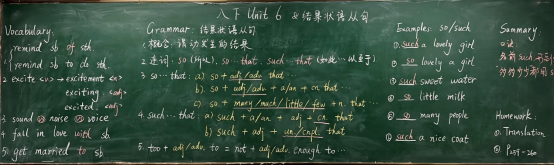 八下 Unit 6 & 结果状语从句
Vocabulary:
1. remind sb of sth.
remind sb to do sth.
2 excite <v> → excitement <n>
exciting <adj>
excited <adj>
3 sound 区 noise 区 voice
4 fall in love with sb
5 get married to sb
Grammar: 结果状语从句
1. 概念: 谓动发生的结果
2. 连词: so (所以), so that, such that (如此…以至于)
3. so … that: a) so + adj/adv that
b) so + adj/adv + a/an + cn that …
c) so + many/much/little/few + n. that …
4. such … that: a) such + a/an + adj + cn that
b) such + adj + un/cnpl. that
5. too + adj/adv. to = not + adj/adv. enough to …
Examples: so/such
① such a lovely girl
② so lovely a girl
③ such sweet water
④ so little milk
⑤ so many people
⑥ such a nice coat
Summary
名前 such
多多少少都用
Homework:
①. Translation
②. P259-260